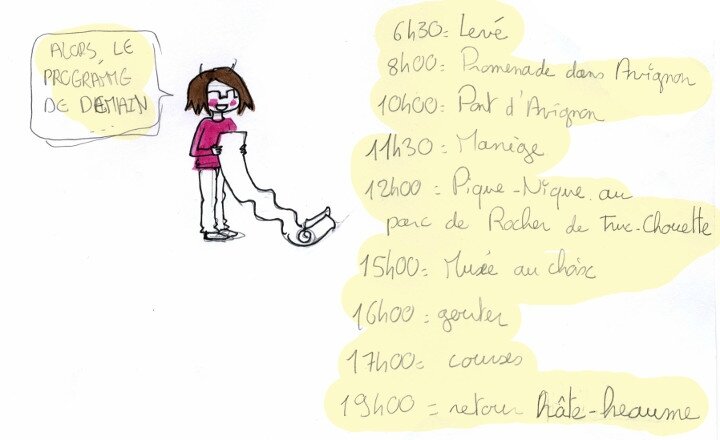 ALORS, LE
PROGRAMME
DE DEMAIN
...
6h30= Levé
8h00= Promenade dans Avignon
10h00= Pont d'Avignon
11h30= Manège
12h00= Pique-Nique au
parc de Rocher de Truc-Chouette
15h00= Musée au choix
16h00= gouter
17h00= courses
19h00= retour hâte-heaume